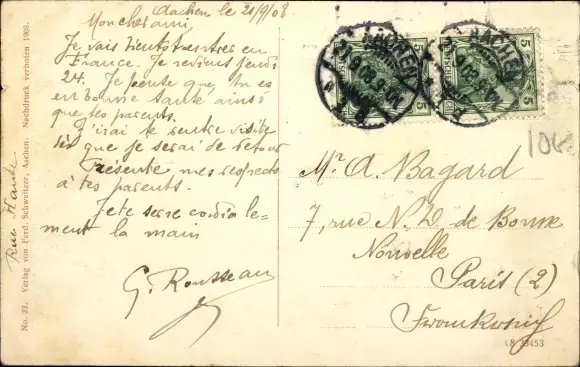 Aachen le 21/9/08
Mon cher ami,
Je vais bientôt rentrer en
France. Je reviens jeudi
24. Je pense que tu es
en bonne santé ainsi
que tes parents.
J'irai te rendre visite
dès que je serai de retour
Présente mes respects
à tes parents.
Je te serre cordiale-
ment la main
G. Rousseau
Mr A. Bagard
7, rue N. D. de Bonne
Nouvelle
Paris (2)
Frankreich
106
AACHEN
21.9.08.5-6N.
AACHEN
5
5
No. 33. Verlag von Ferd. Schweitzer, Aachen. Nachdruck verboten 1905.